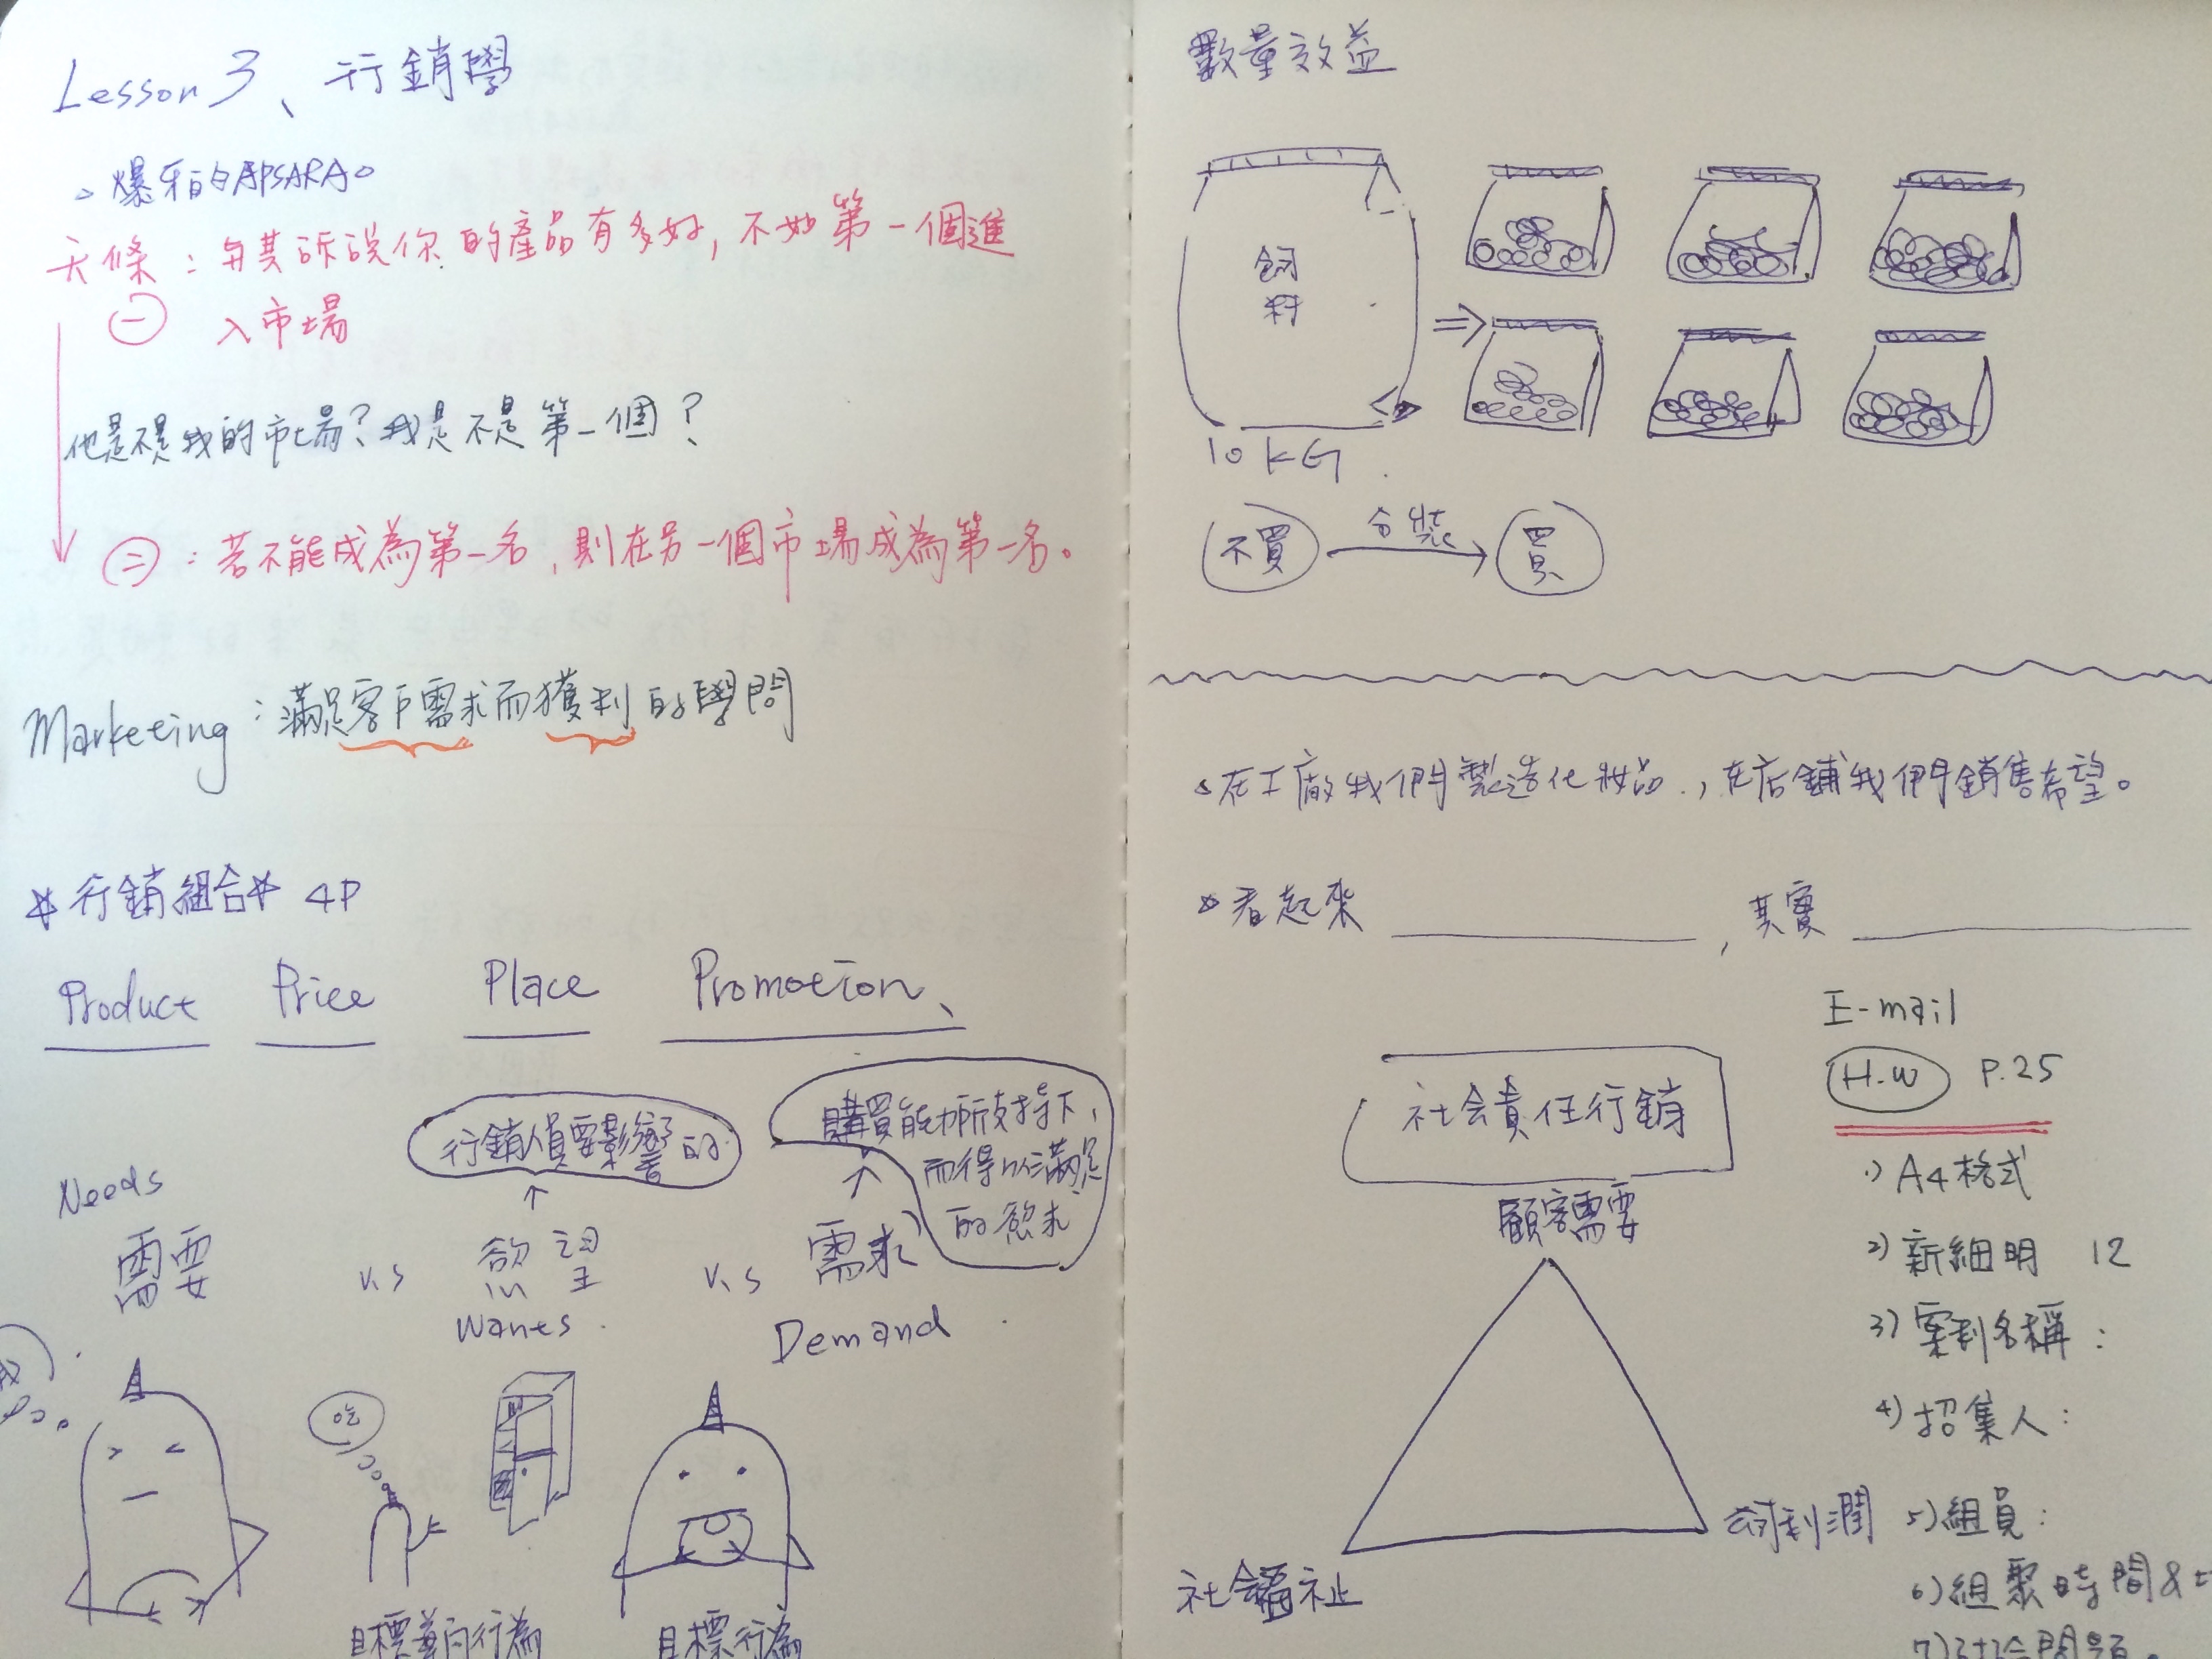 Lesson 3、行銷學
。爆牙的APSARA。
天條：與其訴說你的產品有多好，不如第一個進
㊀ 入市場
他是不是我的市場？我是不是第一個？
㊁：若不能成為第一名，則在另一個市場成為第一名。
Marketing：滿足客戶需求而獲利的學問
*行銷組合* 4P
Product Price Place Promotion、
行銷人員要影響的
購買能力所支持下，
而得以滿足
的慾求
Needs
需要 v.s 慾望 v.s 需求
Wants. Demand
吃
目標導向行為 目標行為
數量效益
飼
料
⇒
10 KG
不買 分裝 買
。在工廠我們製造化妝品，在店鋪我們銷售希望。
*看起來 ，其實
E-mail
H.W P.25
社會責任行銷
1) A4格式
顧客需要
2) 新細明 12
3) 案例名稱：
4) 招集人：
利潤
5) 組員：
社會福祉
6) 組聚時間&
7) 討論問題。